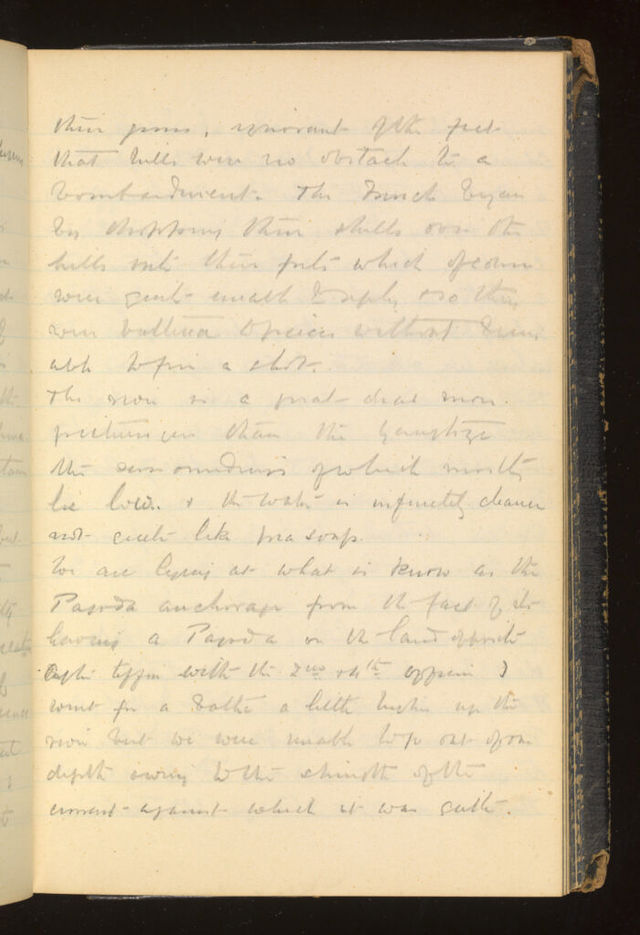 their guns, ignorant of the fact
that hills were no obstacle to a
bombardment. The French began
by dropping their shells over the
hills into their forts which of course
were quite unable to reply & so they
were battered to pieces without being
able to fire a shot.
The river is a great deal more
picturesque than the Yangtize
the surroundings of which mostly
lie low. & the water is infinitely cleaner
not quite like pea soup.
We are lying at what is know as the
Pagoda anchorage from the fact of its
having a Pagoda on the land opposite
after tiffin with the 2nd & 4th officers I
went for a bathe a little higher up the
river but we were unable to go out of our
depth owing to the strength of the
current against which it was quite